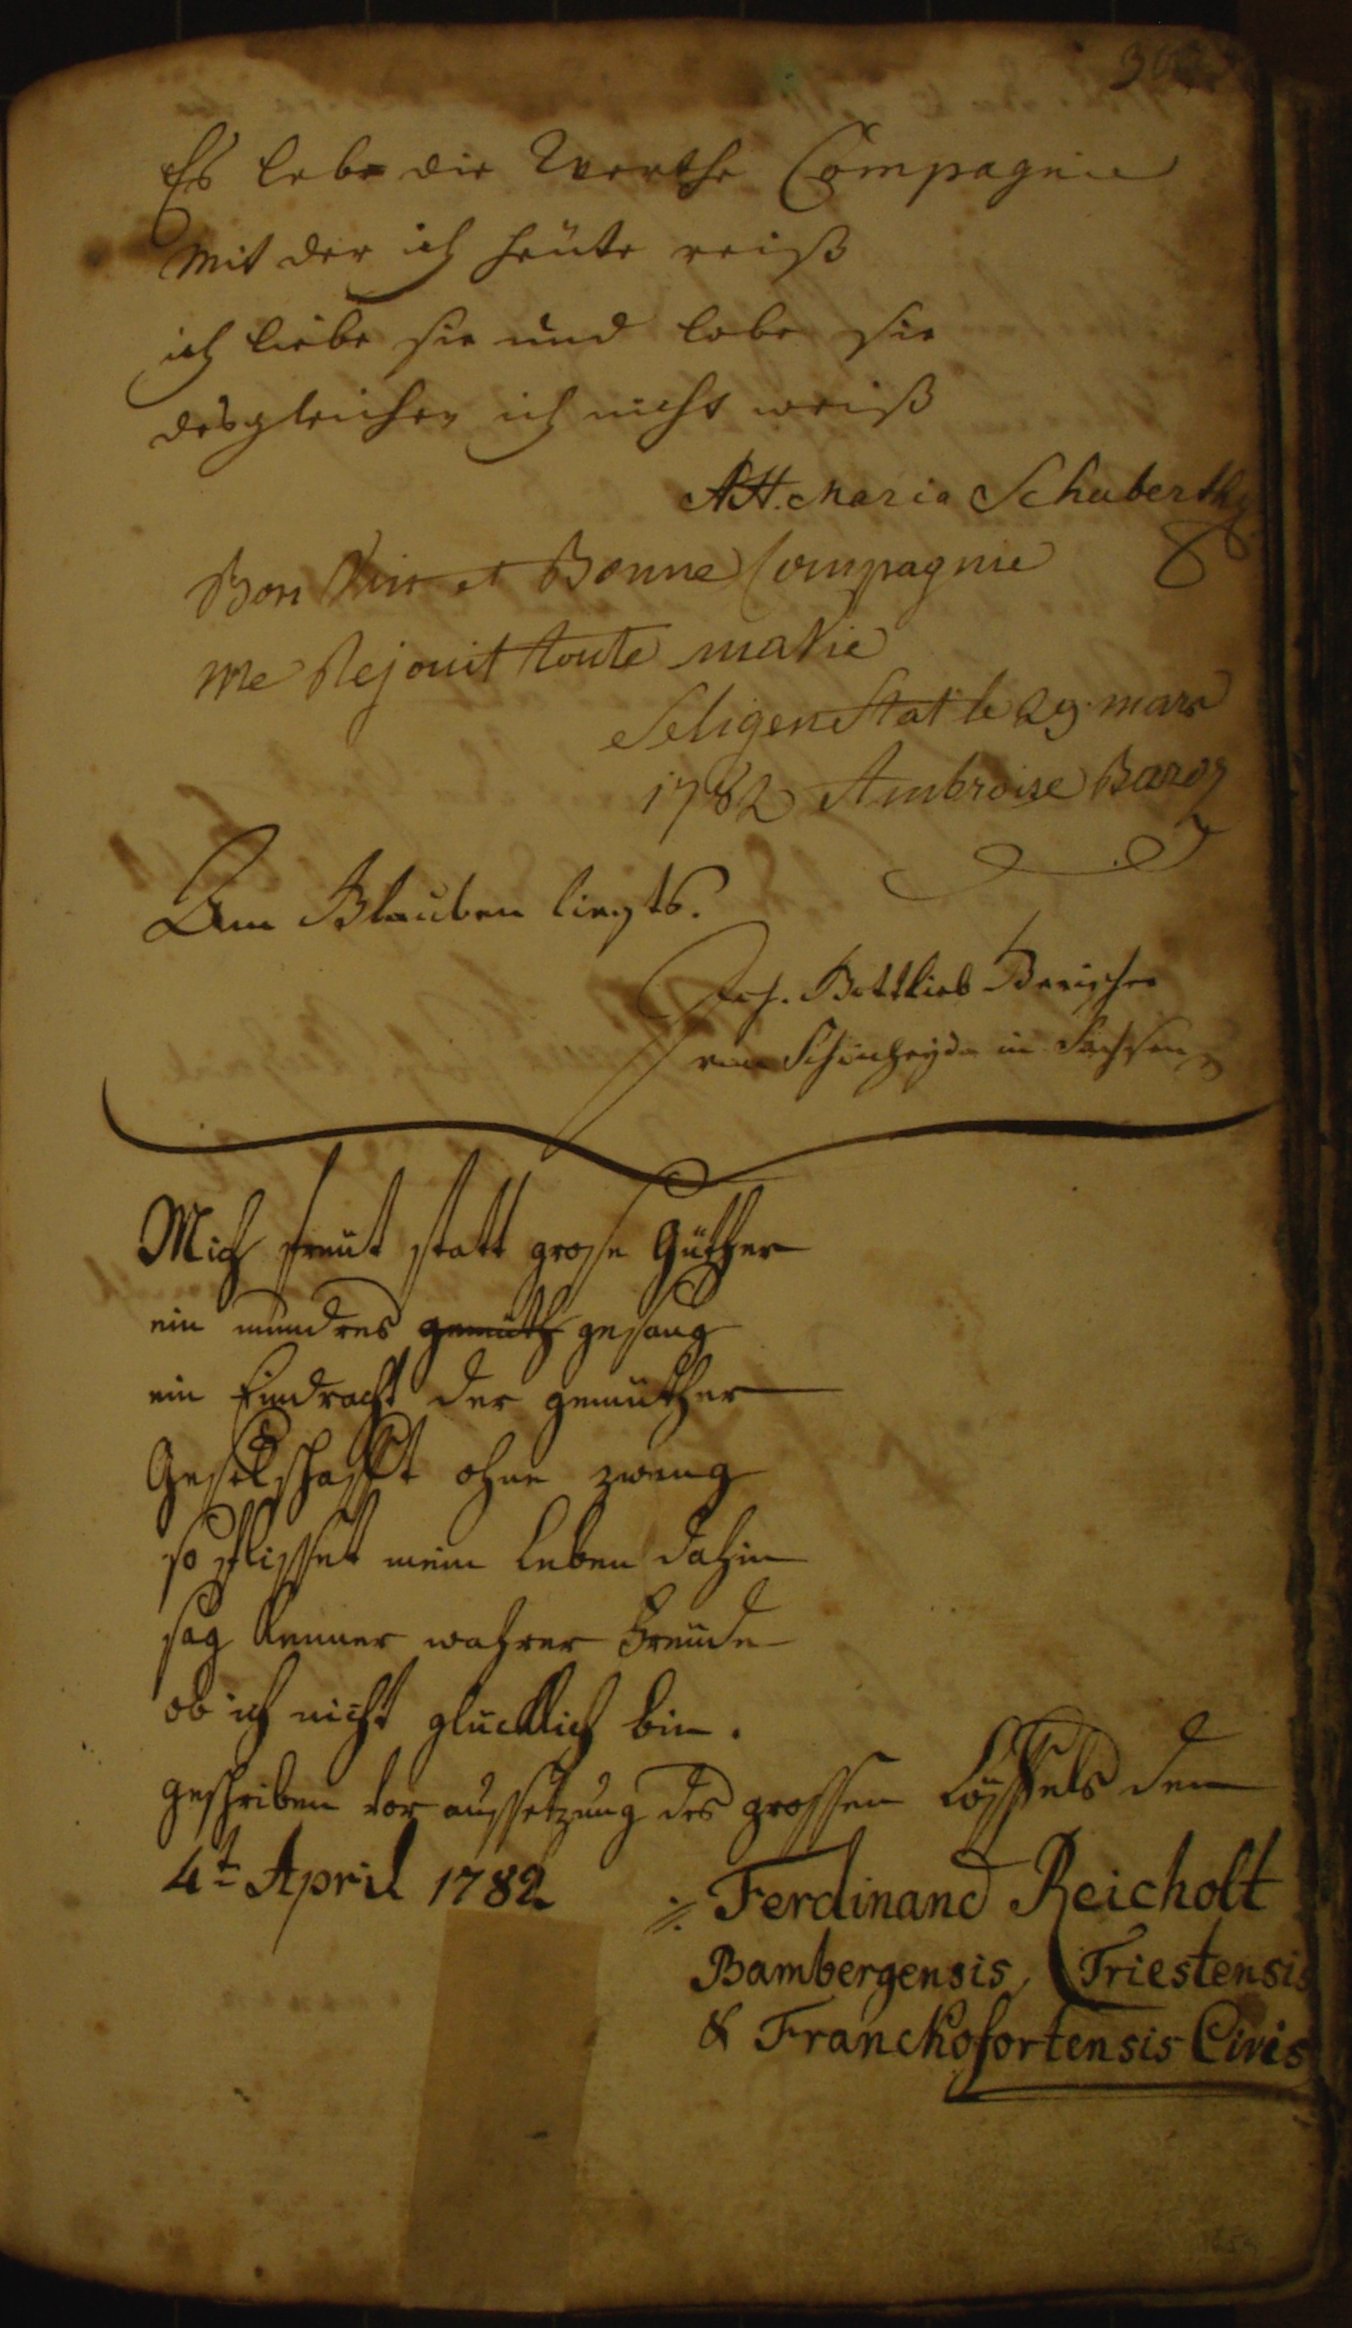 Es lebe die Werthe Compagnie
Mit der ich heüte reiß
ich liebe sie und lobe sie
desgleichen ich nicht weiß
Maria Schuberth
Bon Vin et Bonne Compagnie
me Rejouit toute ma Vie
Seligenstat le 29. mars
1782 Ambroise
Am Glauben liegts.
Joh. Gottlieb
von Schönheyda in Sachsen
Mich freut statt grose Güther
ein mundres gemüth gesang
ein Eindracht der gemüther
Geselschafft ohne zwang
so flisset mein Leben dahin
sag Kenner wahrer Freüde
ob ich nicht glücklich bin.
geschriben vor aussetzung des grossen Löffels den
4t April 1782 Ferdinand Reicholt
Bambergensis, Triestensis
& Franckofortensis Civis